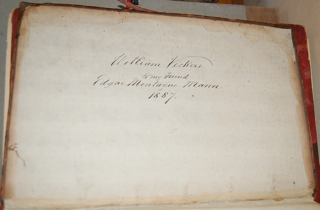 William Vickers
to my friend
Edgar Montague Mann
1887.